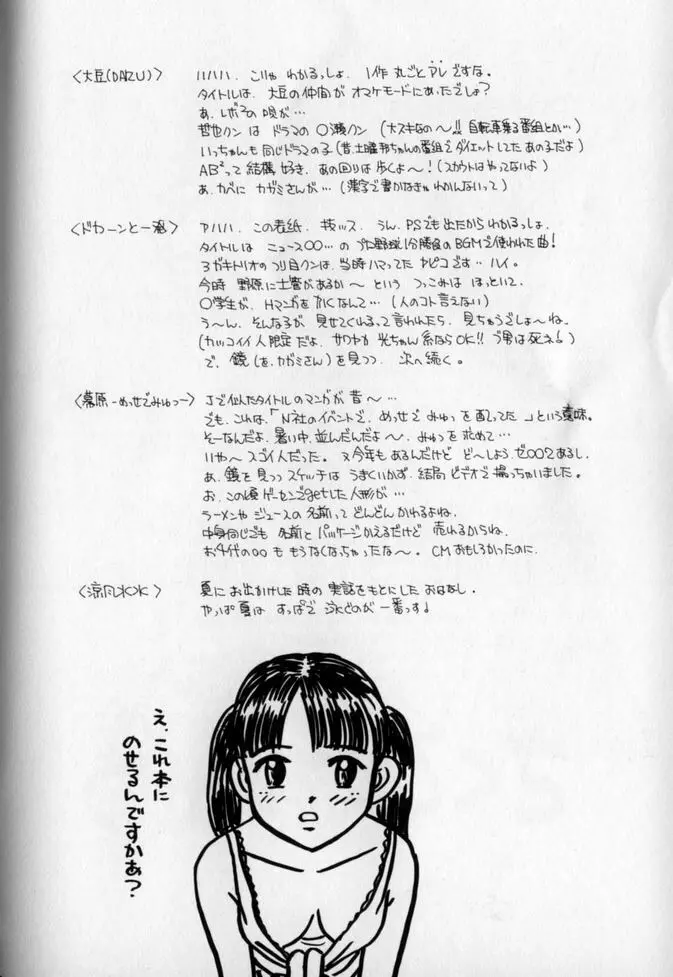 〈大豆(DAIZU)〉
ハハハ、こりゃ わかるっしょ、1作 丸ごと アレ ですな。
タイトルは、大豆の仲間が オマケモードに あいたでしょ?
あ、レボ²の 唄が…
哲也クン は ドラマの 〇瀬クン (大スキなの〜!! 自転車乗る番組とか…)
いっちゃんも同じドラマの子 (昔、土曜邦ちゃんの番組でダイエットしてた あの子だよ)
AB²って 結構 好き、あの回りは 歩くよ〜! (スカウトは やってないよ)
あ、カベに カガミさんが… (漢字で書かなきゃ わかんないって)
〈ドカーンと一発〉
アハハ、この表紙、技ッス、うん、PSでも出たからわかるっしょ、
タイトルは ニュース〇〇… の プロ野球1分勝負の BGMで使われた曲!
3ガキトリオの つり目クンは、当時ハマってた ヤピコです… ハイ。
今時 野原に土管があるか〜 という つっこみは ほっといて、
〇学生が、Hマンガを かくなんて… (人のコト言えない)
う〜ん、そんな子が 見せてくれるって言われたら、見ちゃうでしょ〜ね、
(カッコイイ人限定だよ、サワヤカ 光ちゃん系ならOK!! ブ男は死ネ!)
で、鏡(を、カガミさん)を見つつ 次へ続く。
〈幕原-めっせでみゅっ-〉
Jで似たタイトルのマンガが 昔〜…
でも、これは、「N社のイベントで、めっせで みゅっを 配ってた」という意味。
そーなんだよ、暑い中、並んだんだよ〜、みゅっを 求めて…
いや〜 スゴイ人だった。 又今年も あるんだけど ど〜しよう、ゼ〇〇2あるし、
あ、鏡を見つつ スケッチは うまくいかず、結局 ビデオで 撮っちゃいました。
お、この頃 ゲーセンでgetした 人形が…
ラーメンや ジュースの 名前って どんどん かわるよね、
中身同じでも 名前と パッケージかえるだけど 売れるからね、
お4代の〇〇も もうなくなっちゃったな〜。 CMおもしろかったのに、
〈涼風水水〉
夏に お出かけした 時の 実話をもとにした おはなし、
やっぱ 夏は すっぱで 泳ぐのが 一番っす!
え、これ本に
のせるんですかぁ?